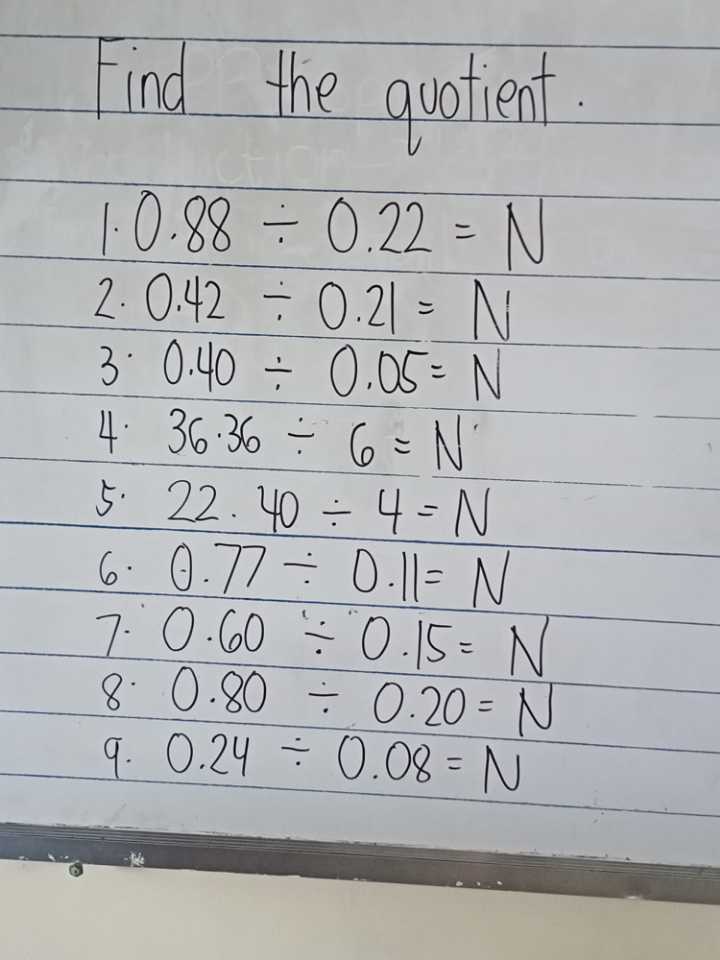 Find the quotient.
1. 0.88 ÷ 0.22 = N
2. 0.42 ÷ 0.21 = N
3. 0.40 ÷ 0.05 = N
4. 36.36 ÷ 6 = N
5. 22.40 ÷ 4 = N
6. 0.77 ÷ 0.11 = N
7. 0.60 ÷ 0.15 = N
8. 0.80 ÷ 0.20 = N
9. 0.24 ÷ 0.08 = N